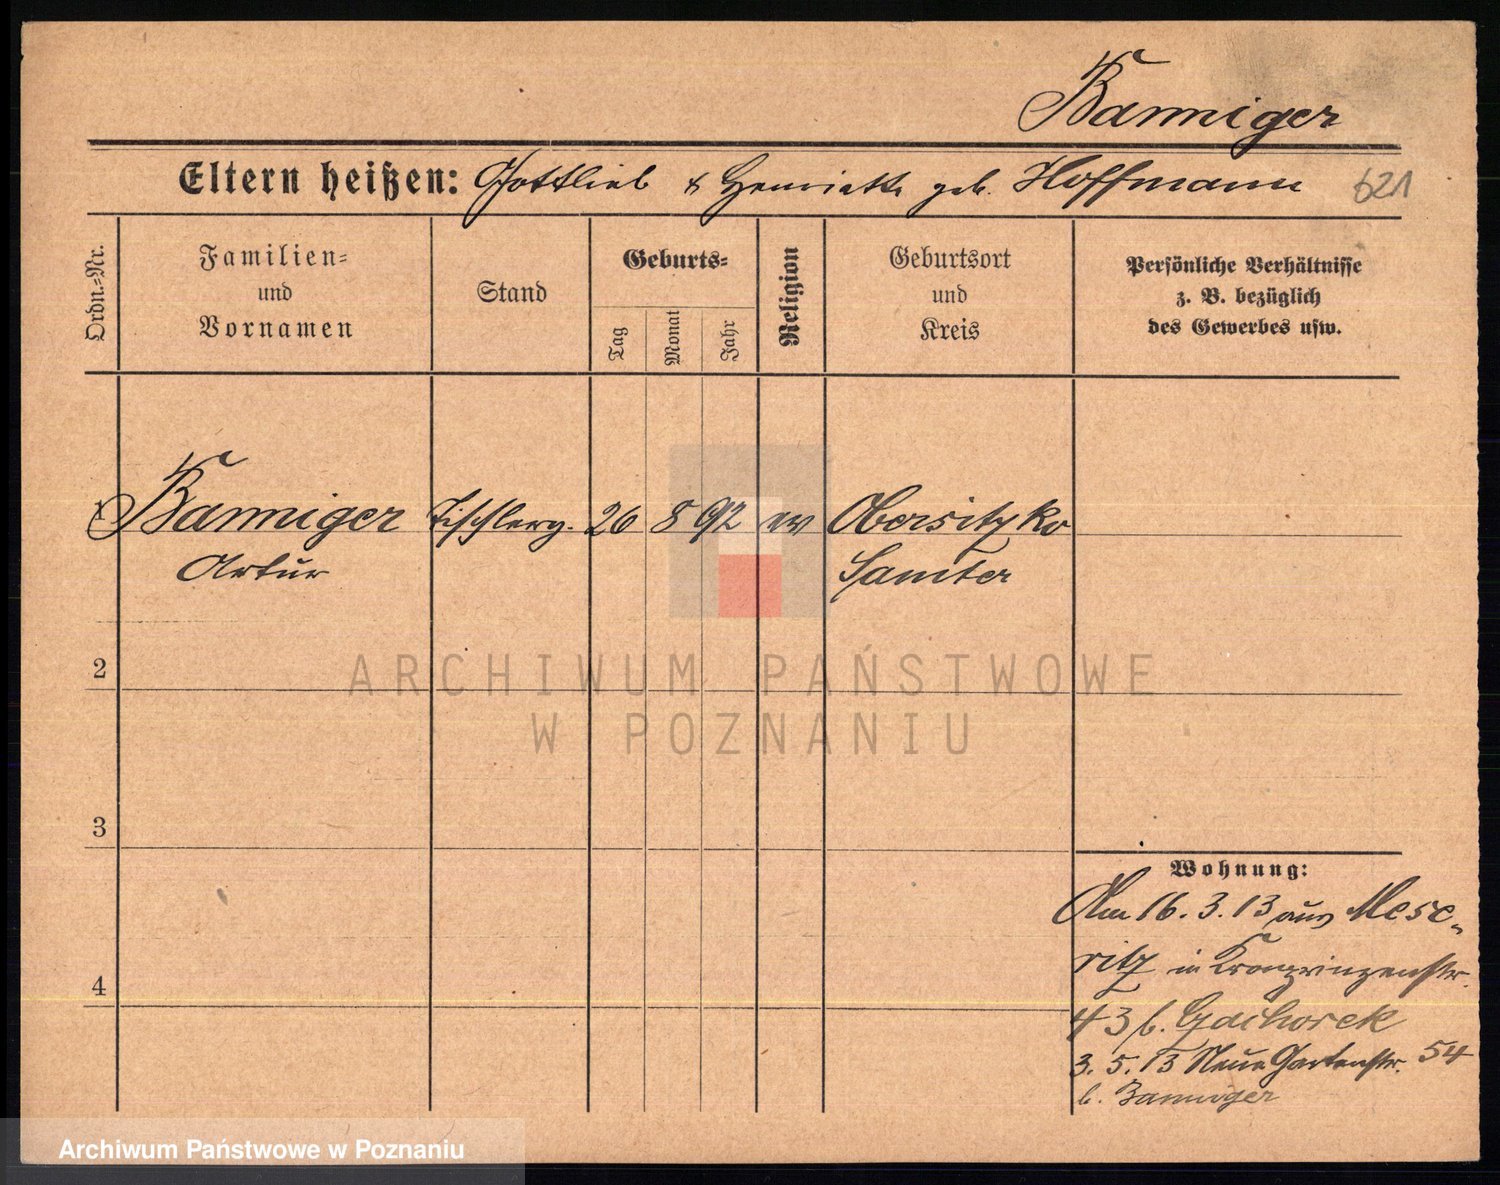 Banniger
Eltern heißen: Gottlieb & Henriette geb. Hoffmann 621
Ordn.-Nr.
Familien=
und
Vornamen
Stand
Geburts=
Tag
Monat
Jahr
Religion
Geburtsort
und
Kreis
Persönliche Verhältnisse
z. B. bezüglich
des Gewerbes usw.
1 Banniger Tischlerg. 26 8 92 ev Obersitzko
Artur Samter
2
ARCHIWUM PAŃSTWOWE
W POZNANIU
3
Wohnung:
Am 16. 3. 13 aus Mese-
ritz in Kronprinzenstr.
4
43 b.
3. 5. 13 Neue Gartenstr. 54
b. Banniger
Archiwum Państwowe w Poznaniu